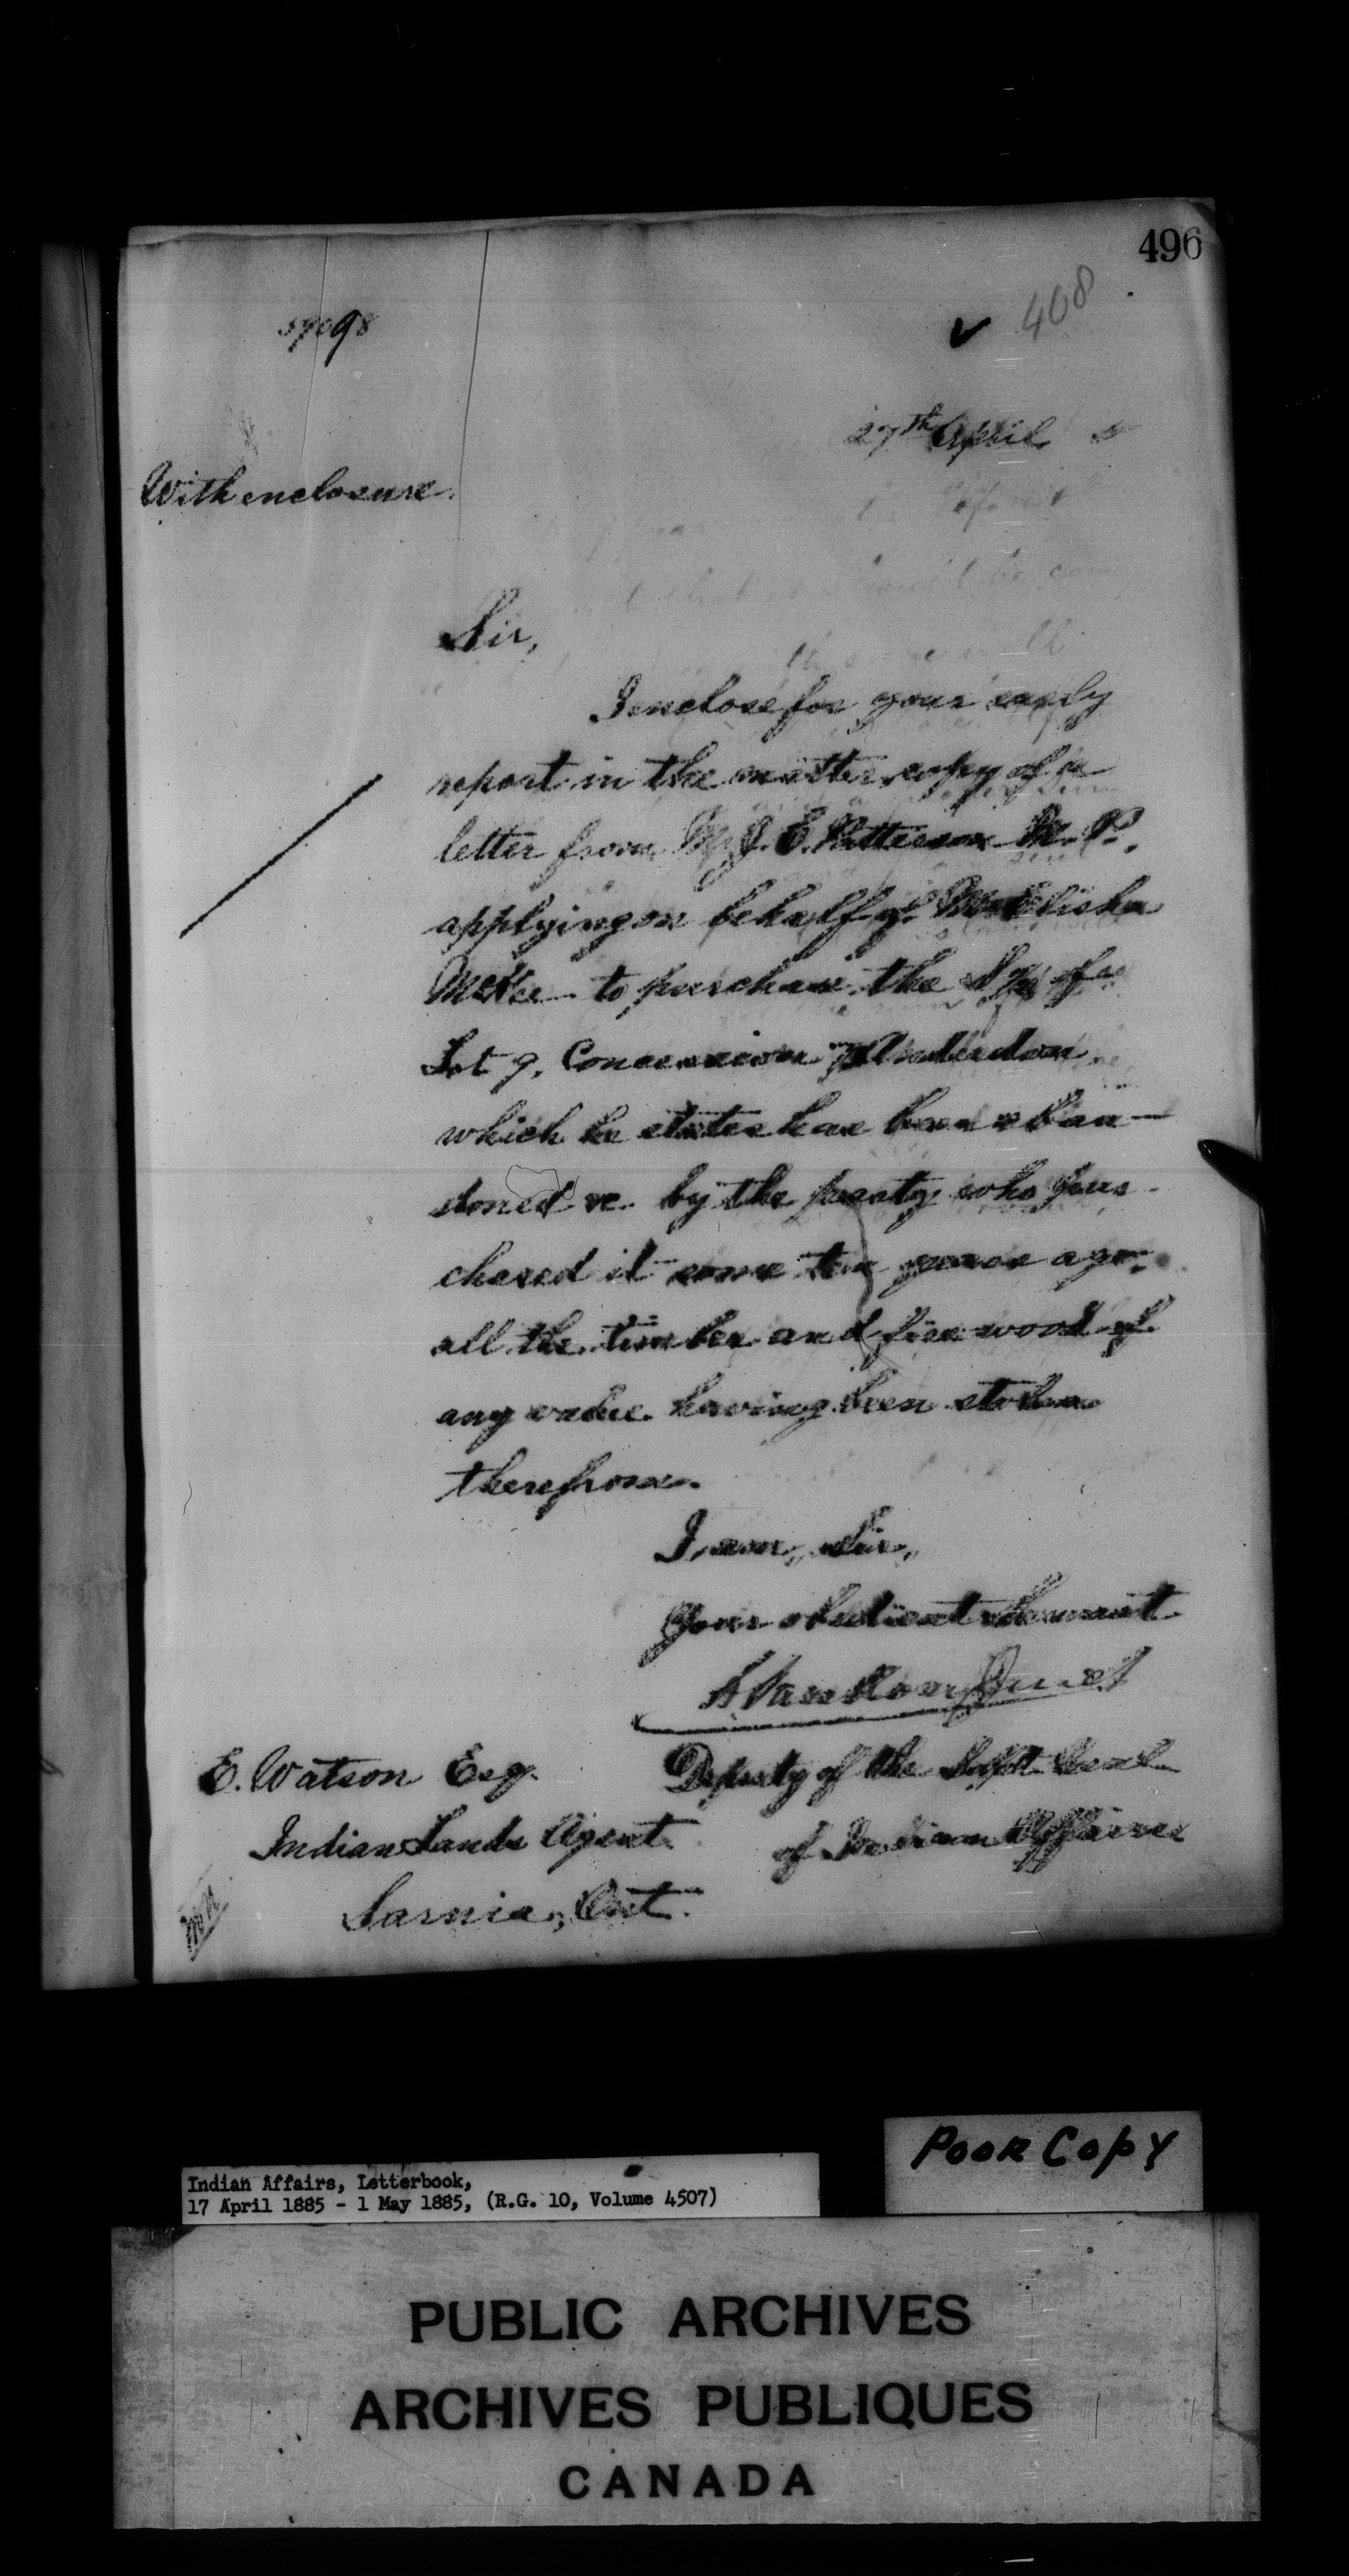 496
408
59098
27th April 5
With enclosure.
Sir,
I enclose for your early
report in the matter copy of a
letter from Mr J. E. Patterson M.P.
applying on behalf of Mr Elisha
McKee to purchase the S ½ of
Lot 9, Concession 7 Anderdon
which he states has been aban-
doned by the party who pur-
chased it some ten years ago,
all the timber and fire wood of
any value having been stolen
therefrom.
I am, Sir,
Your obedient Servant
L VanKoughnet
E. Watson Esq. Deputy of the Supt. Genl
Indian Lands Agent of Indian Affairs
Sarnia, Ont.
Poor Copy
Indian Affairs, Letterbook,
17 April 1885 - 1 May 1885, (R.G. 10, Volume 4507)
PUBLIC ARCHIVES
ARCHIVES PUBLIQUES
CANADA